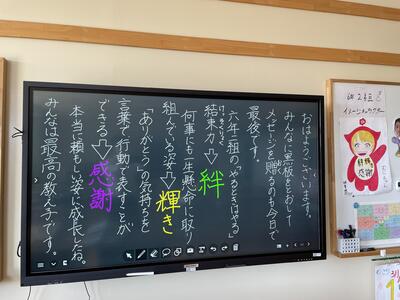 おはようございます。
みんなに黒板をとおして
メッセージを贈るのも今日で
最後です。
六年二組の「やるときはやる」
けっそくりょく
結束力⇨絆
何事にも一生懸命に取り
組んでいる姿⇨輝き
「ありがとう」の気持ちを
言葉で行動で表すことが
できる⇨感謝
本当に頼もしい姿に成長したね。
みんなは最高の教え子です。
絆 輝
感謝